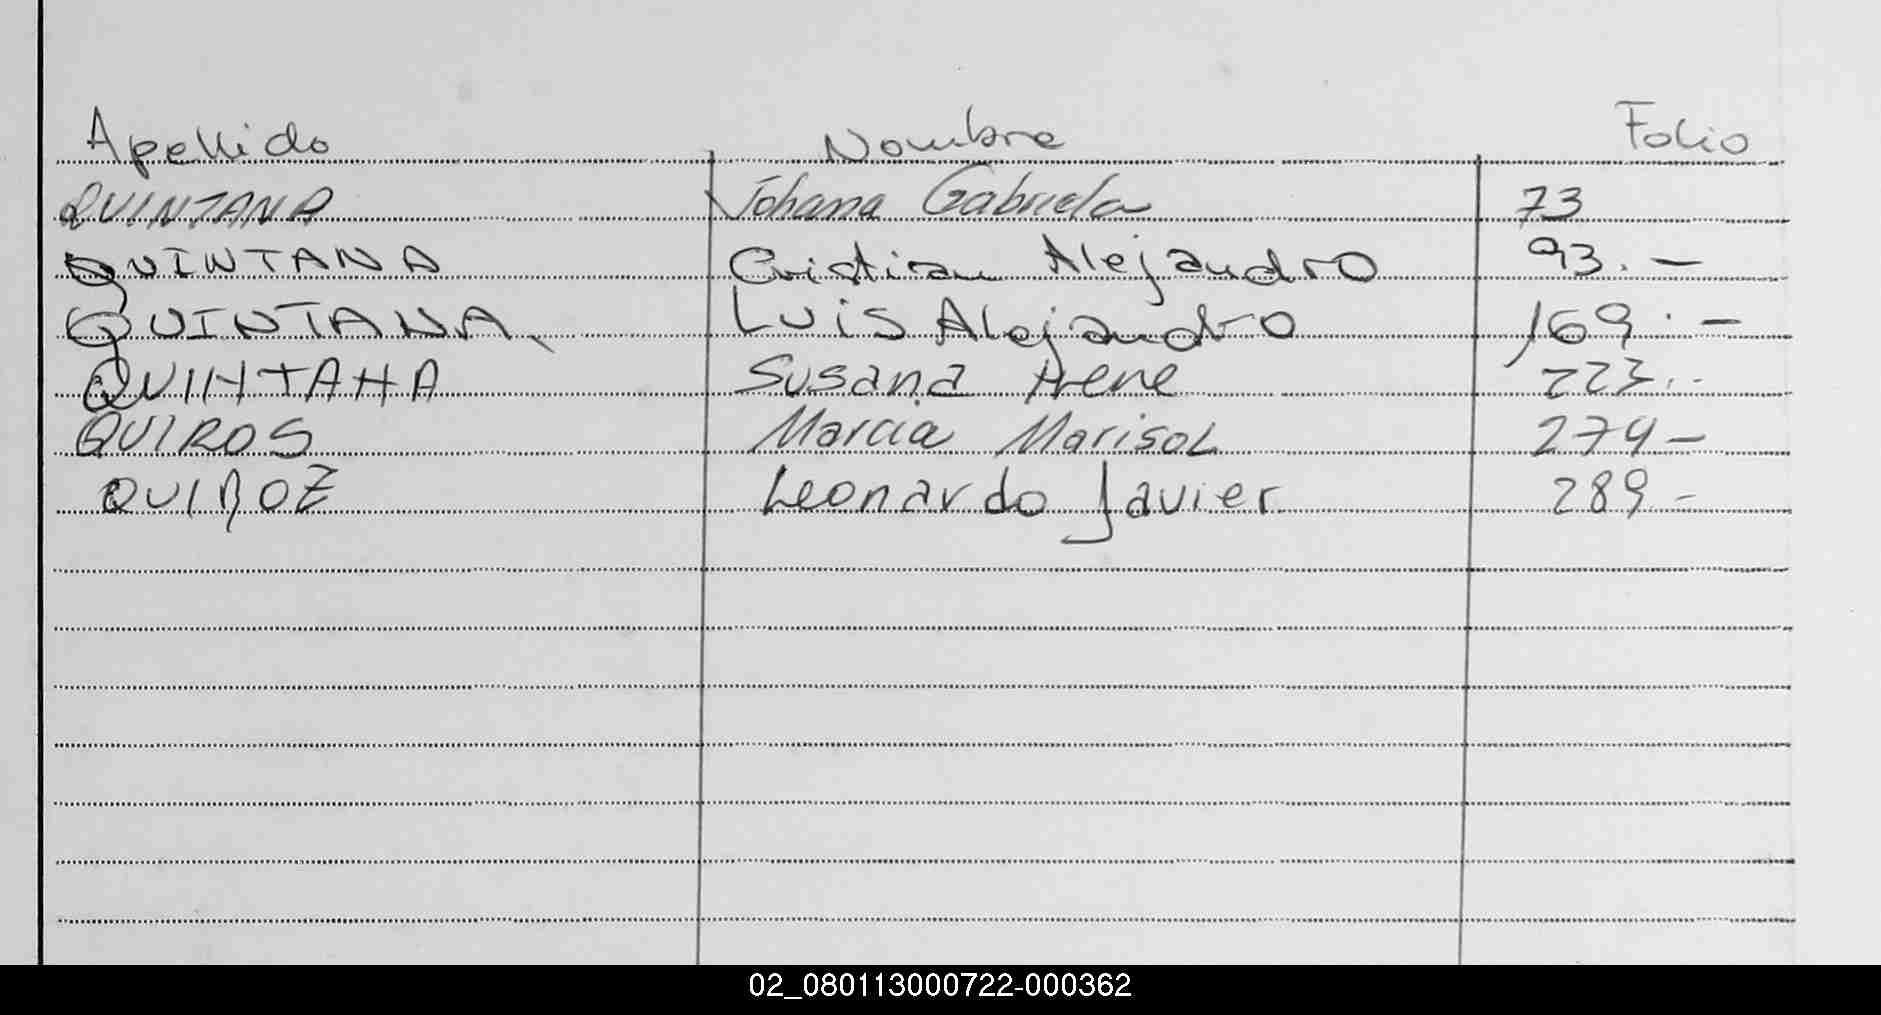 Apellido Nombre Folio
QUINTANA Johana Gabriela 73
QUINTANA Cristian Alejandro 93.-
QUINTANA Luis Alejandro 169.-
QUINTANA Susana Irene 223..
QUIROS Marcia Marisol 274-
QUIROZ Leonardo Javier 289-
02_080113000722-000362